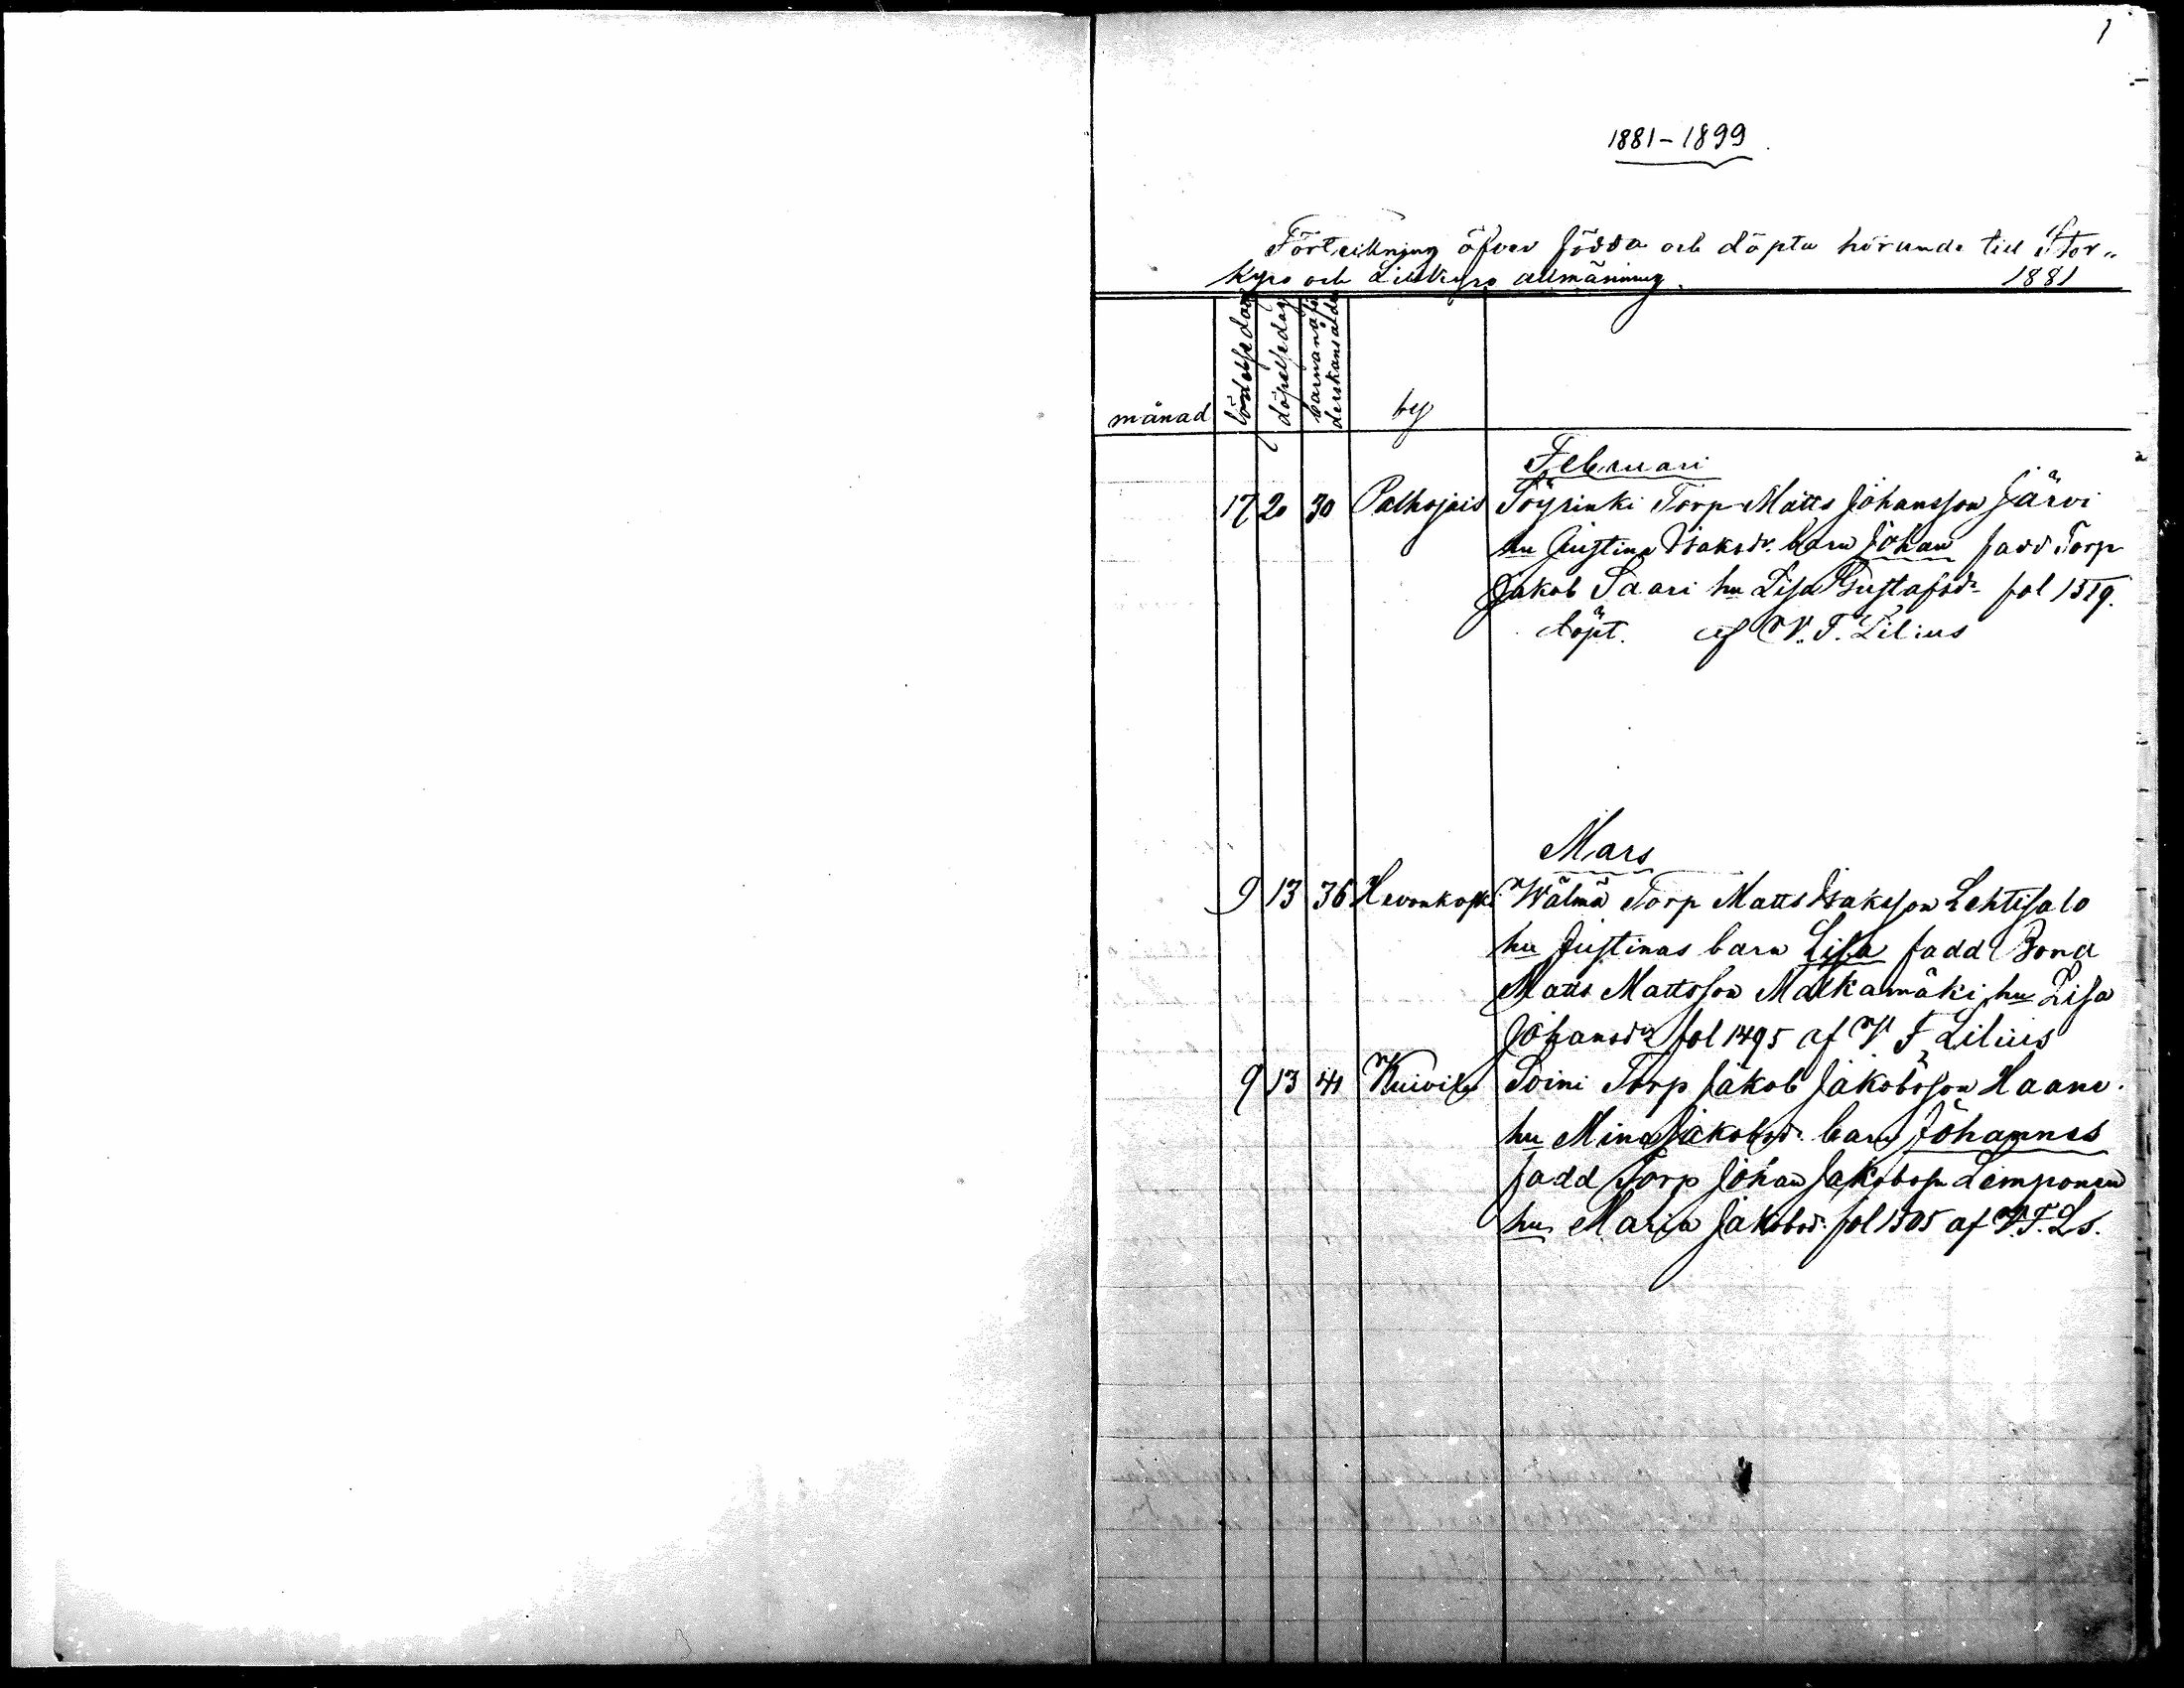 1
1881-1899
Förteckning öfver födda och döpta hörande till Stor„
kyro och Lillkyro allmänning. 1881
månad födelsedag döpelsedag barnanöderskans ålder by
Februari
17 20 30 Palhojais Töyrinki Torp Matts Johansson Järvi
hu Justina Isaksdr. barn Johan fadd Torp
Jakob Saari hu Lisa Gustafsdr fol 1519.
döpt. af V. F. Lilius
Mars
9 13 36 Hevonkoski Wälmä Torp Matts Isaksson Lehtisalo
hu Justinas barn Lisa fadd Bond
Matts Mattsson Malkamäki hu Lisa
Johansdr fol 1495 af V F Lilius
9 13 41 Kuivila Soini Torp Jakob Jakobsson Haane.
hu Mina Jakobsdr. barn Johannes
fadd Torp Johan Jakobsson Limponen
hu Maria Jakobsd. fol 1505 af V.F. Ls.